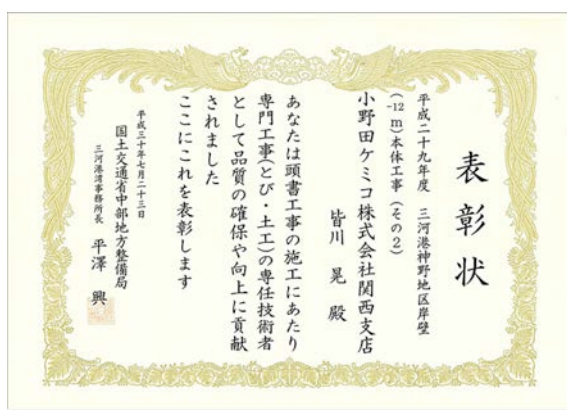 表彰状
平成二十九年度 三河港神野地区岸壁
(-12m)本体工事(その2)
小野田ケミコ株式会社関西支店
皆川 晃 殿
あなたは頭書工事の施工にあたり
専門工事(とび・土工)の専任技術者
として品質の確保や向上に貢献
されました
ここにこれを表彰します
平成三十年七月二十三日
国土交通省中部地方整備局
三河港湾事務所長 平澤 興